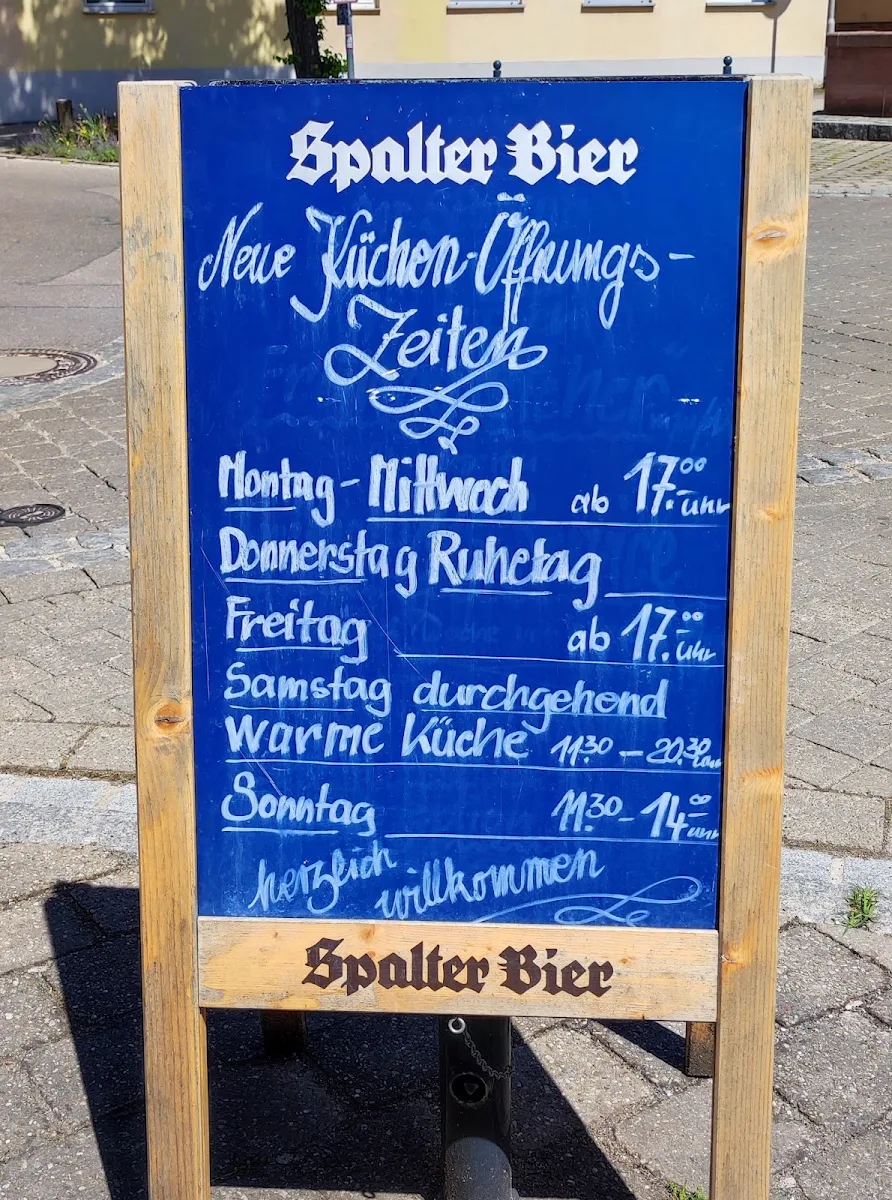 Spalter Bier
Neue Küchen-Öffnungs-
Zeiten
Montag - Mittwoch ab 17.00 uhr
Donnerstag Ruhetag
Freitag ab 17.00 Uhr
Samstag durchgehend
Warme Küche 11.30 - 20.30 Uhr
Sonntag 11.30 - 14.00 uhr
herzlich willkommen
Spalter Bier